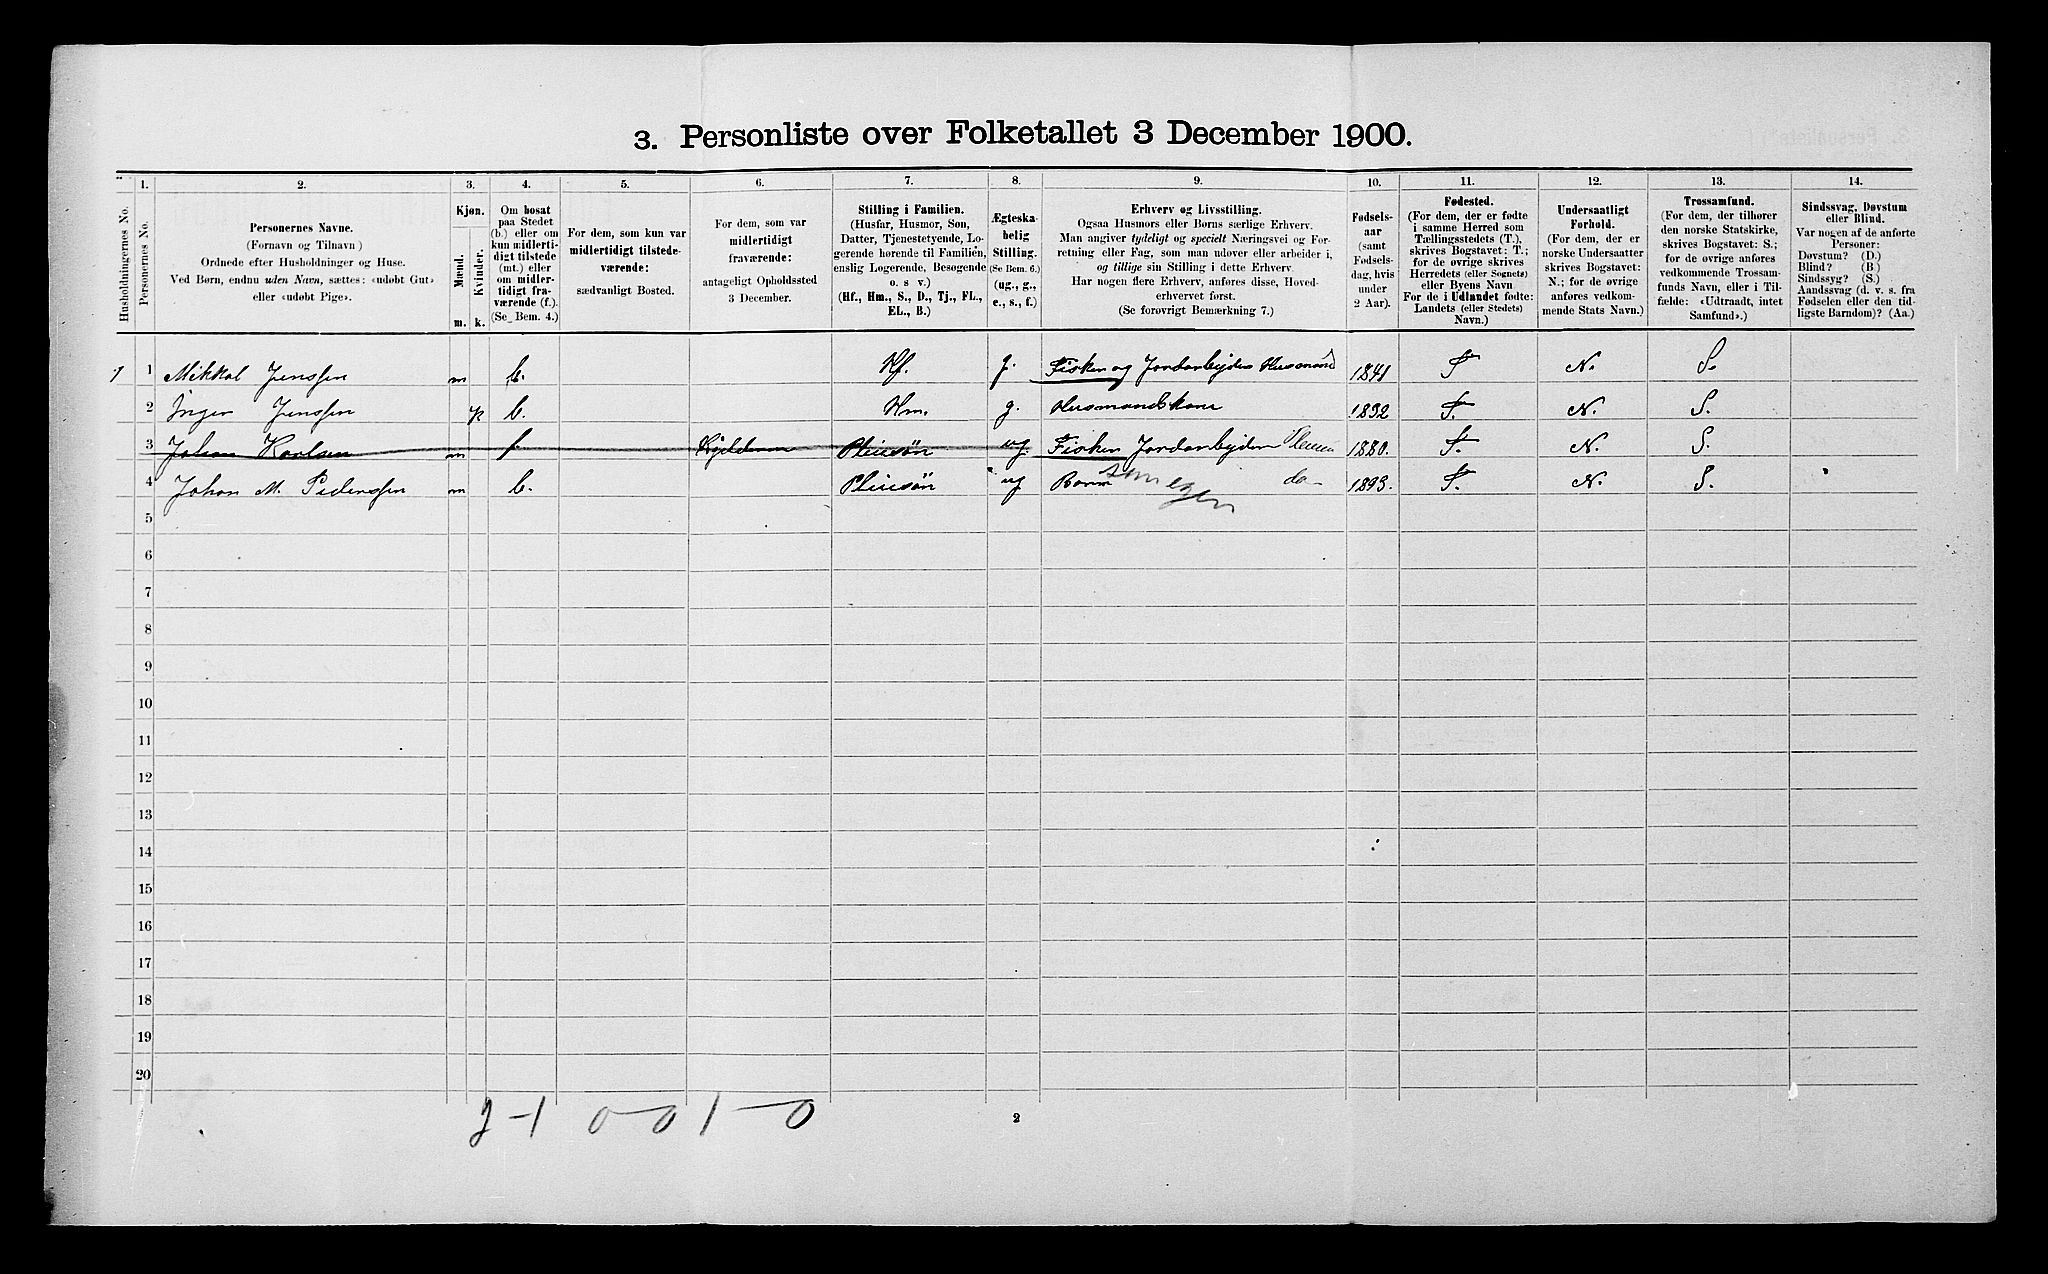 3. Personliste over Folketallet 3 December 1900.
Husholdningernes No.
1. Personernes No.
2. Personernes Navne. (Fornavn og Tilnavn) Ordnede efter Husholdninger og Huse. Ved Børn, endnu uden Navn, sættes: «udøbt Gut» eller «udøbt Pige».
3. Kjøn. Mænd. m. Kvinder. k.
4. Om bosat paa Stedet (b.) eller om kun midlertidigt tilstede (mt.) eller om midlertidigt fraværende (f.) (Se Bem. 4.)
5. For dem, som kun var midlertidigt tilstedeværende: sædvanligt Bosted.
6. For dem, som var midlertidigt fraværende: antageligt Opholdssted 3 December.
7. Stilling i Familien. (Husfar, Husmor, Søn, Datter, Tjenestetyende, Logerende hørende til Familien, enslig Logerende, Besøgende o. s v.) (Hf., Hm., S., D., Tj., FL., EL., B.)
8. Ægteskabelig Stilling. (Se Bem. 6.) (ug., g., e., s., f.)
9. Erhverv og Livsstilling. Ogsaa Husmors eller Børns særlige Erhverv. Man angiver tydeligt og specielt Næringsvei og Forretning eller Fag, som man udøver eller arbeider i, og tillige sin Stilling i dette Erhverv. Har nogen flere Erhverv, anføres disse, Hovederhvervet først. (Se forøvrigt Bemærkning 7.)
10. Fødselsaar (samt Fødselsdag, hvis under 2 Aar).
11. Fødested. (For dem, der er fødte i samme Herred som Tællingsstedets (T.), skrives Bogstavet: T.; for de øvrige skrives Herredets (eller Sognets) eller Byens Navn For de i Udlandet fødte: Landets (eller Stedets) Navn.)
12. Undersaatligt Forhold. (For dem, der er norske Undersaatter skrives Bogstavet: N.; for de øvrige anføres vedkommende Stats Navn.)
13. Trossamfund. (For dem, der tilhører den norske Statskirke, skrives Bogstavet: S.; for de øvrige anføres vedkommende Trossamfunds Navn, eller i Tilfælde: «Udtraadt, intet Samfund».)
14. Sindssvag, Døvstum eller Blind. Var nogen af de anførte Personer: Døvstum? (D.) Blind? (B) Sindssyg? (S.) Aandssvag (d. v. s. fra Fødselen eller den tidligste Barndom)? (Aa.)
1 1 Mikkal Jenssen m b. Hf. g. Fisker og Jordarbejder Husmand 1841 T N. S.
2 Inger Jenssen k b. Hm. g. Husmandskone 1832 T. N. S.
3 Johan Karlsen m f. Pleiesøn ug. Fisker Jordarbejder 1880. T. N. S.
4 Johan M. Pedersen m b. Pleiesøn ug Barn som egen do 1893. T. N. S.
5
6
7
8
9
10
11
12
13
14
15
16
17
18
19
20
2-1 0-0 1-0
2